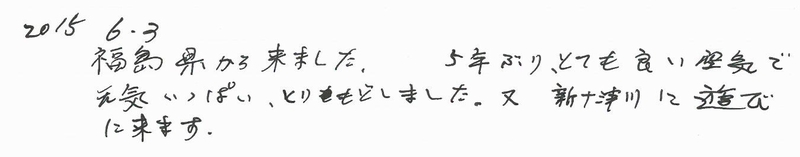 2015 6.3
福島県から来ました。 5年ぶり、とても良い空気で
元気いっぱい、とりもどしました。又 新十津川に遊び
に来ます.